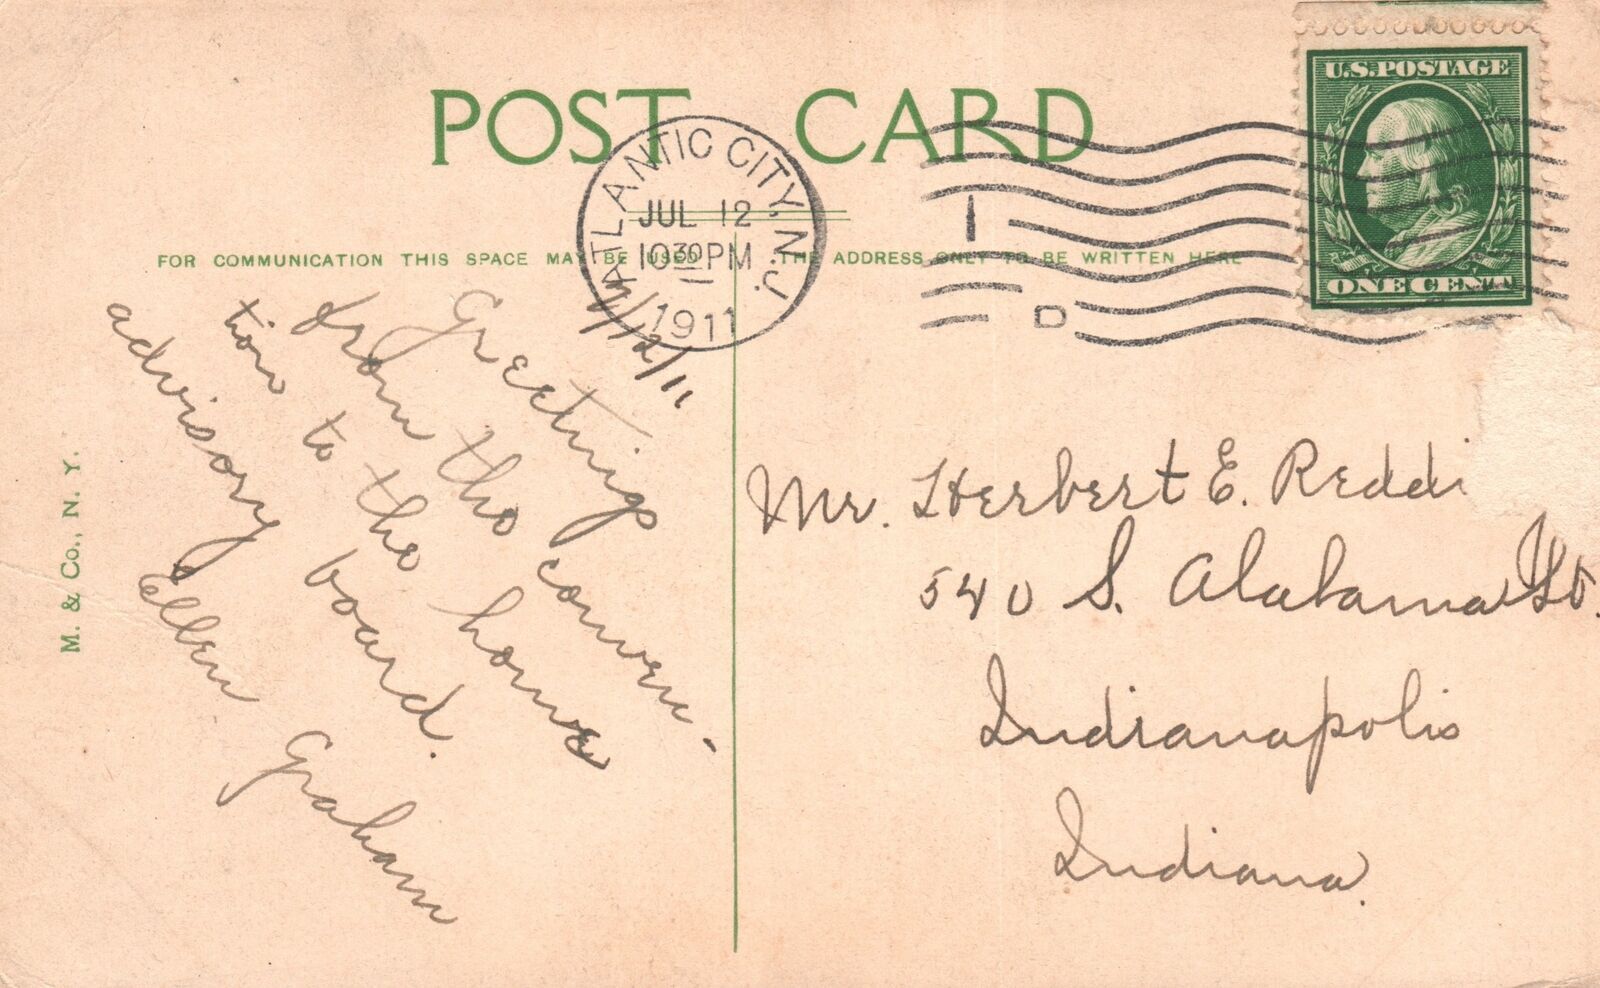 POST CARD
U.S. POSTAGE
ONE CENT
ATLANTIC CITY, N.J.
JUL 12
10 30 PM
1911
1
D
FOR COMMUNICATION THIS SPACE MAY BE USED
THE ADDRESS ONLY TO BE WRITTEN HERE
M. & Co., N. Y.
7/12/11
Greetings
from the conven-
tion to the home
advisory board.
Ellen Graham
Mr. Herbert E. Reddi
540 S. Alabama St.
Indianapolis
Indiana.